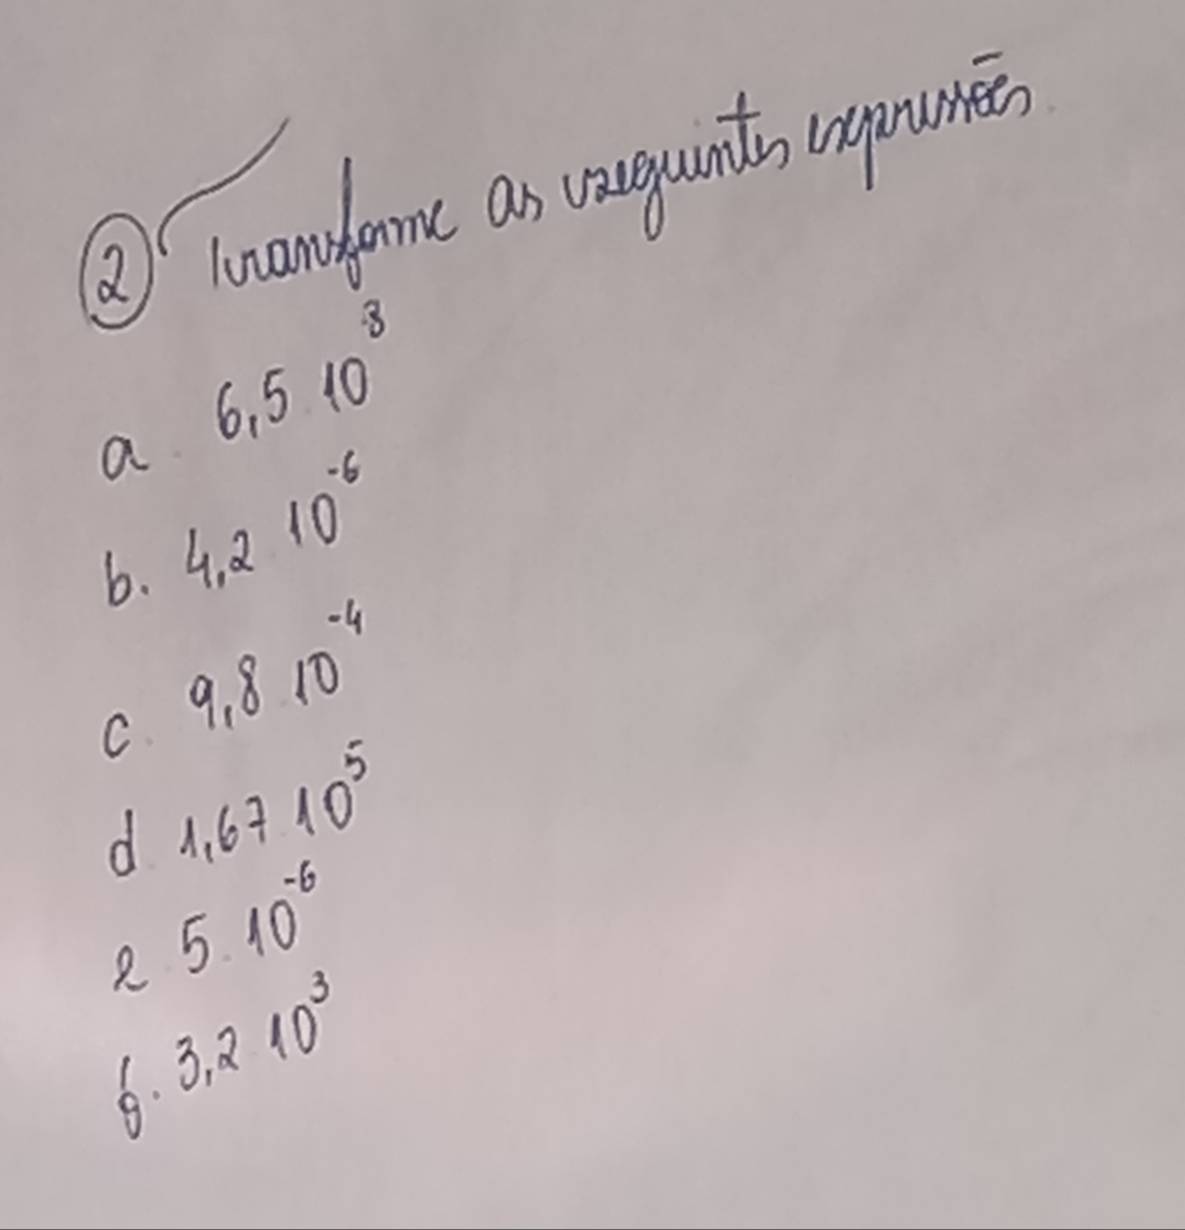 ② Transforme as seguintes expressões
a. 6,5 10³
b. 4,2 10⁻⁶
c. 9,8 10⁻⁴
d 1,67 10⁵
e 5. 10⁻⁶
f. 3,2 10³